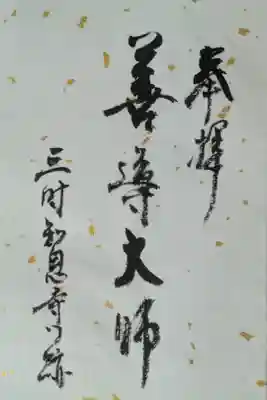 奉拝
善導大師
三時知恩寺門跡